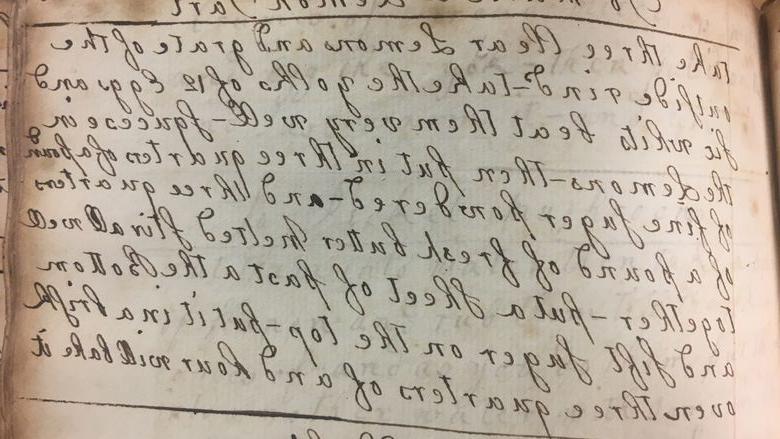 To make Lemon Tart
take three Clear Lemons and grate of the
outside rind-take the yolks of 12 Eggs and
six whits beat them very well-squeese in
the Lemons-then put in three quarters of a pound
of fine suger powdered-and three quarters
of a pound of fresh butter melted stir all well
together-put a sheet of past a the Bottom
and sift suger on the top-put it in a brisk
oven three quarters of and hour will bake it